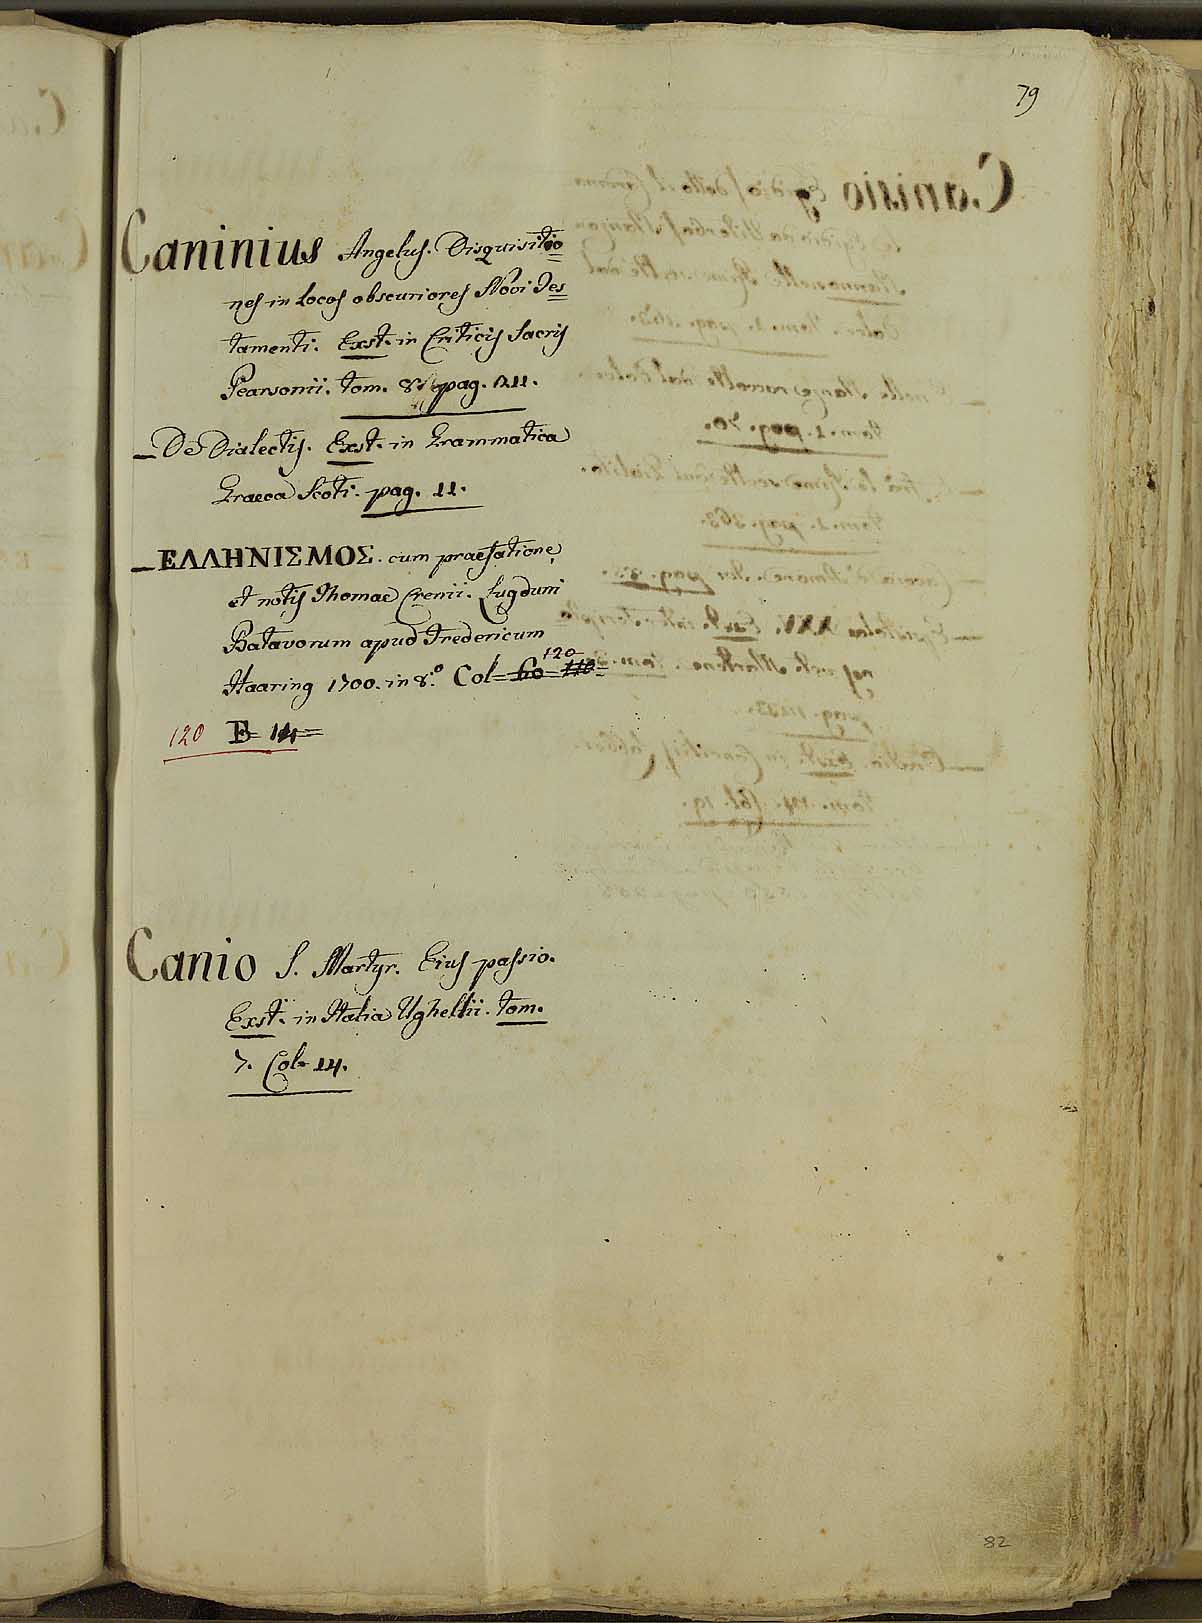 79
Caninius Angelus. Disquisitio=
nes in locos obscuriores Novi Tes=
tamenti. Exst. in Criticis Sacris
Pearsonii. tom. 8. pag. 211.
— De Dialectis. Exst. in Grammatica
Graeca Scoti. pag. 11.
— ΕΛΛΗΝΙΣΜΟΣ. cum praefatione,
et notis Thomae Crenii. Lugduni
Batavorum apud Fredericum
120
Haaring 1700. in 8.º Col= 60= 110=
120 E 14
Canio S. Martyr. Eius passio.
Exst. in Italia Ughellii. tom.
7. Col. 14.
82